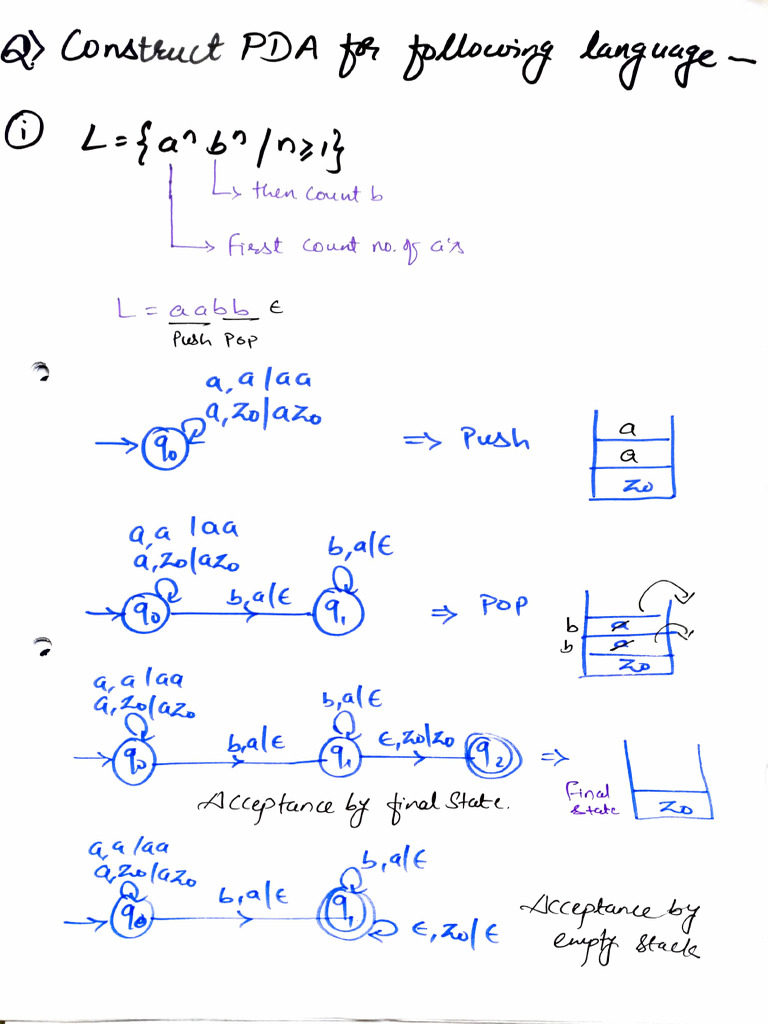 Q> Construct PDA for following language –
(i) L = {aⁿ bⁿ / n ≥ 1}
↳ then count b
→ First count no. of a's
L = a a b b ε
Push Pop
a, a / aa
a, z₀ | az₀
→ q₀ ⇒ Push
a
a
z₀
a, a | aa
a, z₀ | az₀
b, a | ε
→ q₀ b, a | ε q₁ ⇒ Pop
b a
b a
z₀
a, a / aa
a, z₀ | az₀
b, a | ε
→ q₀ b, a | ε q₁ ε, z₀ | z₀ q₂ ⇒
Final state
z₀
Acceptance by final state.
a, a / aa
a, z₀ | az₀
b, a | ε
→ q₀ b, a | ε q₁
ε, z₀ | ε
Acceptance by
empty stack